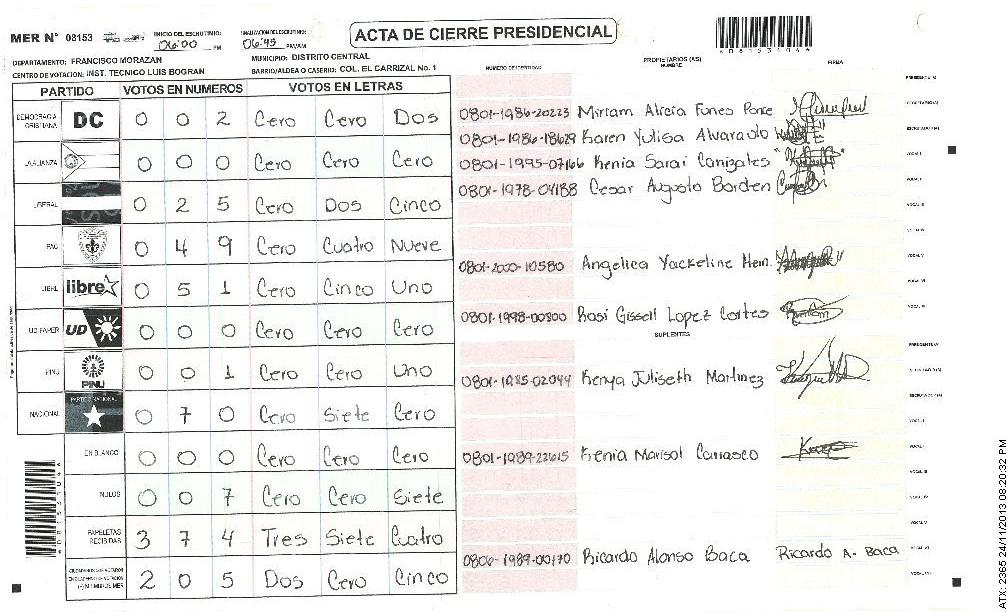 MER N° 08153
INICIO DEL ESCRUTINIO: 06:00 PM
FINALIZACION DEL ESCRUTINIO: 06:45 PM/AM
ACTA DE CIERRE PRESIDENCIAL
DEPARTAMENTO: FRANCISCO MORAZAN
MUNICIPIO: DISTRITO CENTRAL
CENTRO DE VOTACION: INST. TECNICO LUIS BOGRAN
BARRIO/ALDEA O CASERIO: COL. EL CARRIZAL No. 1
PARTIDO VOTOS EN NUMEROS VOTOS EN LETRAS
DEMOCRACIA CRISTIANA DC 0 0 2 Cero Cero Dos
LA ALIANZA 0 0 0 Cero Cero Cero
LIBERAL 0 2 5 Cero Dos Cinco
PAC 0 4 9 Cero Cuatro Nueve
LIBRE libre 0 5 1 Cero Cinco Uno
UD-FAPER UD 0 0 0 Cero Cero Cero
PINU PINU 0 0 1 Cero Cero Uno
NACIONAL PARTIDO NACIONAL 0 7 0 Cero Siete Cero
EN BLANCO 0 0 0 Cero Cero Cero
NULOS 0 0 7 Cero Cero Siete
PAPELETAS RECIBIDAS 3 7 4 Tres Siete Cuatro
2 0 5 Dos Cero Cinco
NUMERO DE IDENTIDAD PROPIETARIOS (AS) NOMBRE FIRMA
PRESIDENTE(A)
0801-1986-20223 Miriam Alicia Funes Ponce SECRETARIO(A)
0801-1986-18629 Karen Yulisa Alvarado ESCRUTADOR(A)
0801-1995-07166 Kenia Sarai Canizales VOCAL I
0801-1978-04188 Cesar Augusto Barden
0801-2000-10580 Angelica Yackeline Hern.
0801-1998-00800 Rosi Gissell Lopez Cortes
SUPLENTES
PRESIDENTE(A)
0801-1985-02044 Kenya Juliseth Martinez
0801-1989-22615 Kenia Marisol Carrasco
0800-1989-00170 Ricardo Alonso Baca Ricardo A. Baca
ATX: 2365 24/11/2013 08:20:32 PM